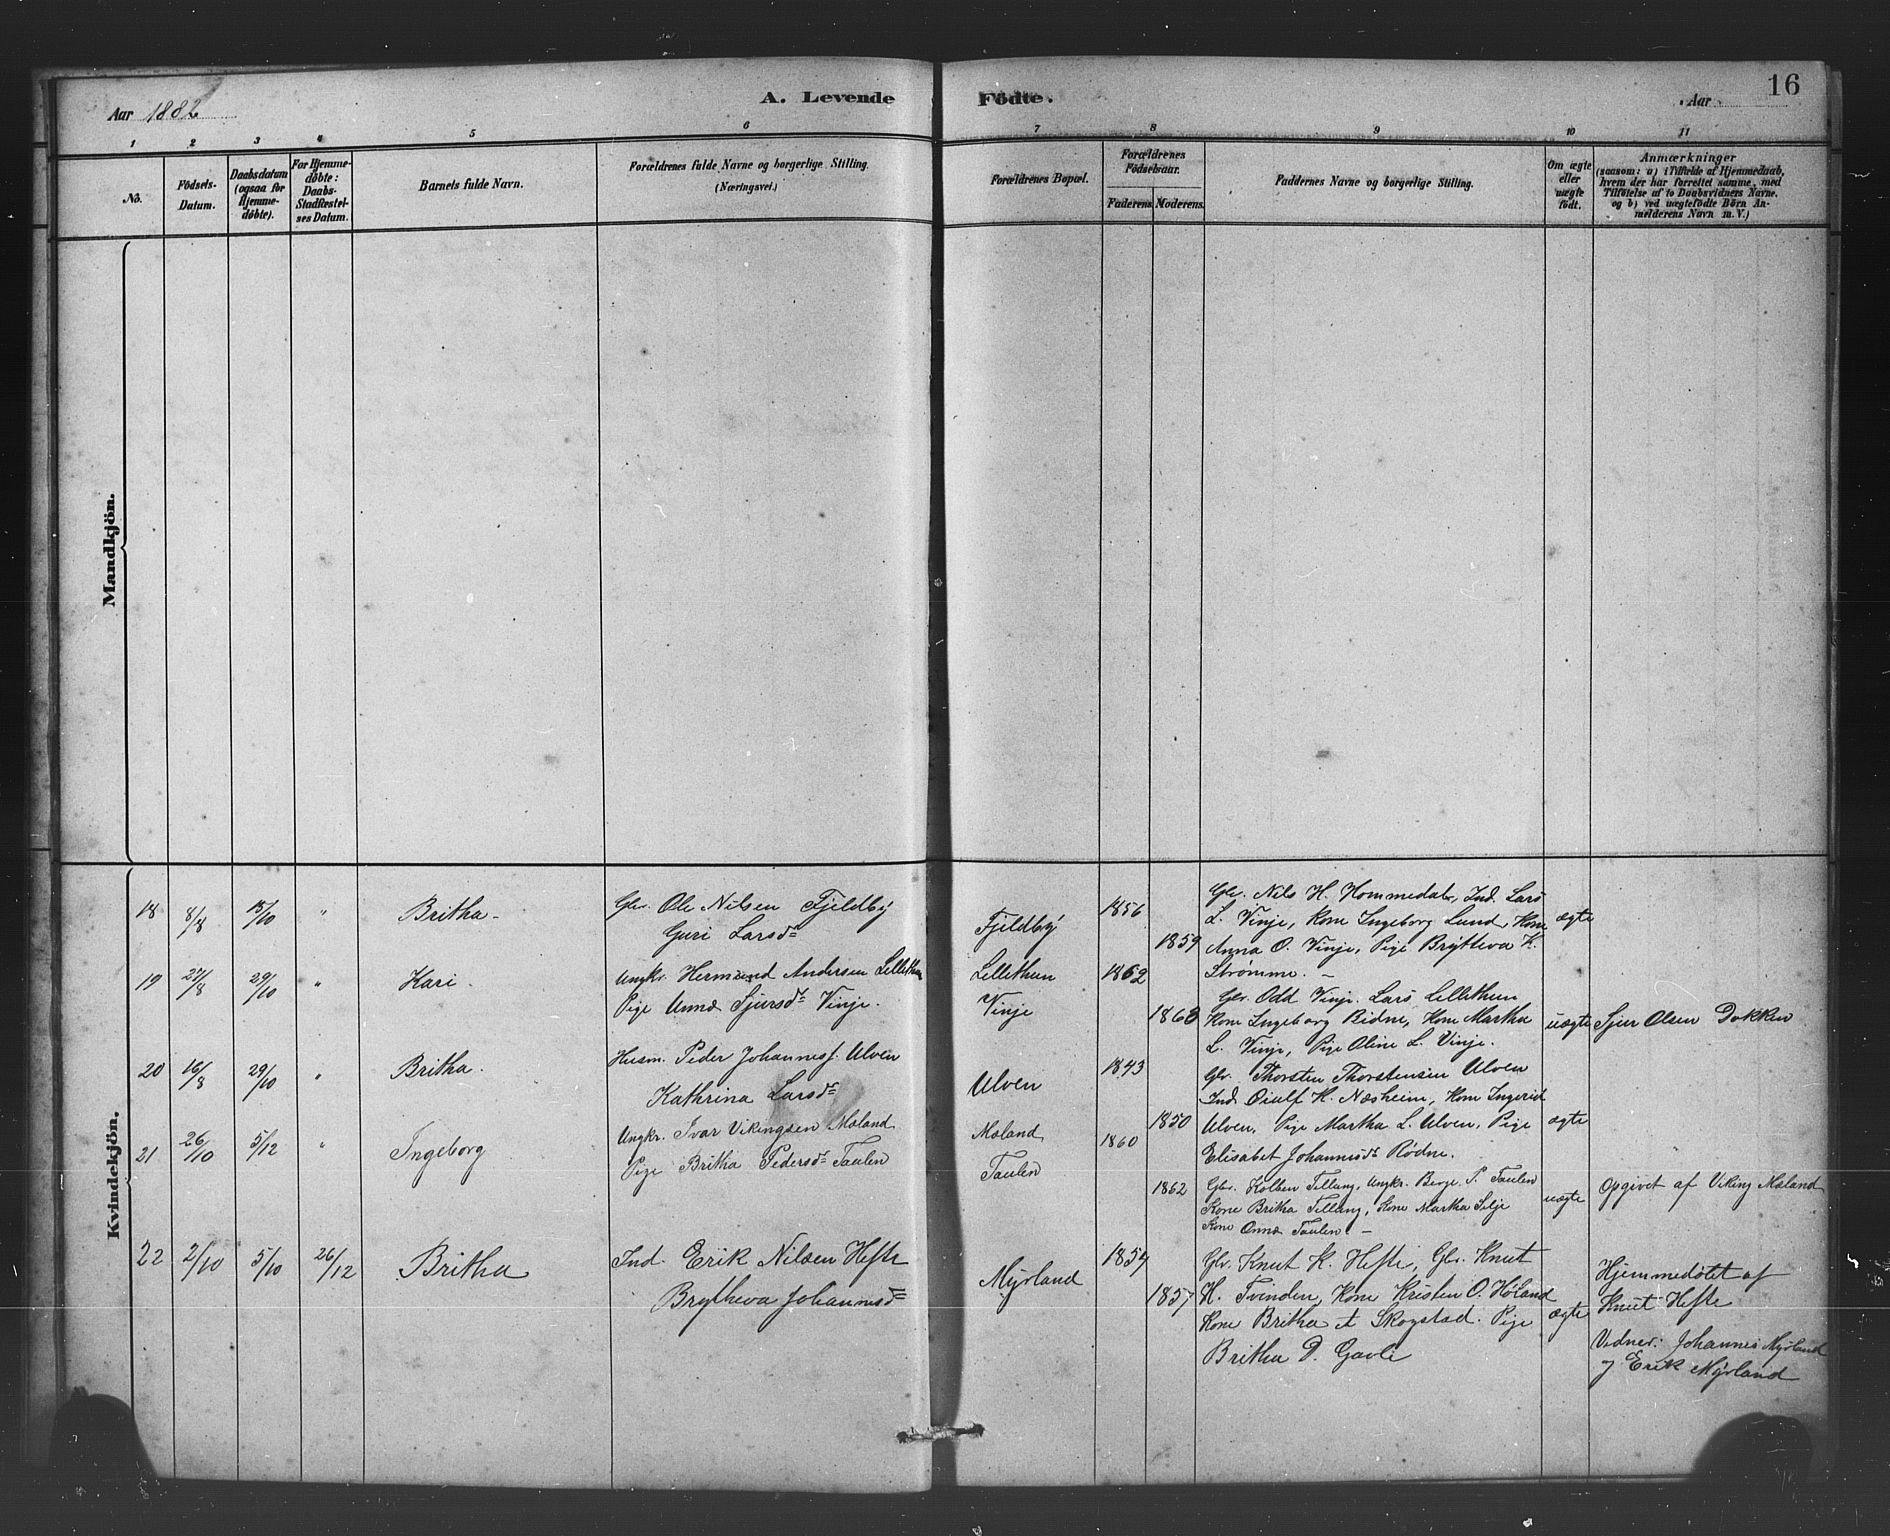 16
Aar 1882
A. Levende Födte.
Aar
1 2 3 4 5 6 7 8 9 10 11
No.
Födsels-Datum.
Daabsdatum (ogsaa for Hjemme-döbte).
For Hjemme-döbte: Daabs-Stadfæstelses Datum.
Barnets fulde Navn.
Forældrenes fulde Navne og borgerlige Stilling.
(Næringsvei.)
Forældrenes Bopæl.
Forældrenes Födselsaar.
Faderens Moderens.
Faddernes Navne og borgerlige Stilling.
Om ægte eller uægte födt.
Anmærkninger
(saasom: a) i Tilfælde af Hjemmedaab, hvem der har forrettet samme, med Tilföielse af to Daabsvidners Navne, og b) ved uægtefödte Börn Anmelderens Navn m. V.)
Mandkjön.
Kvindekjön.
18 8/8 15/10 " Britha
Gbr. Ole Nilsen Fjeldby
Guri Larsdr
Fjeldby 1856 1859
Gbr. Nils H. Hommedal, Ind. Lars
L. Vinje, Kone Ingeborg Lund, Kone
Anna O. Vinje, Pige Brytteva K.
Strømme. –
ægte
19 27/8 29/10 " Kari.
Ungkr. Hermund Andersen Lillethun
Pige Anna Sjursdr Vinje.
Lillethun
Vinje
1862 1863
Gbr. Odd Vinje. Lars Lillethun
Kone Ingeborg Bidne, Kone Martha
L. Vinje, Pige Oline L. Vinje.
uægte
Sjur Olsen Dokken
20 16/8 29/10 " Britha.
Husm. Peder Johannesf. Ulven
Kathrina Larsdr
Ulven 1843 1850
Gbr. Thorsten Thorstensen Ulven
Ind. H. Næsheim, Kone Ingerid
Ulven, Pige Martha L. Ulven, Pige
Elisabet Johannesdr Rødne.
ægte
21 26/10 5/12 " Ingeborg
Ungkr. Ivar Vikingsen Møland
Pige Britha Pedersdr Taulen
Møland
Taulen
1860 1862
Gbr. Kolben Tillung, Ungkr. Berge P. Taulen
Kone Britha Tillung, Kone Martha Selje
Kone Anna Taulen –
uægte
Opgivet af Viking Møland
22 2/10 5/10 26/12 Britha
Ind. Erik Nilsen Hefte
Brytheva Johannesdr
Myrland 1854 1857
Gbr. Knut K. Hefte, Gbr. Knut
H. Tvinden, Kone Kristen O. Høland
Kone Britha A Skogstad. Pige
Britha D. Gavle
ægte
Hjemmedøbt af
Knut Hefte
Vidner: Johannes Myrland
og Erik Myrland